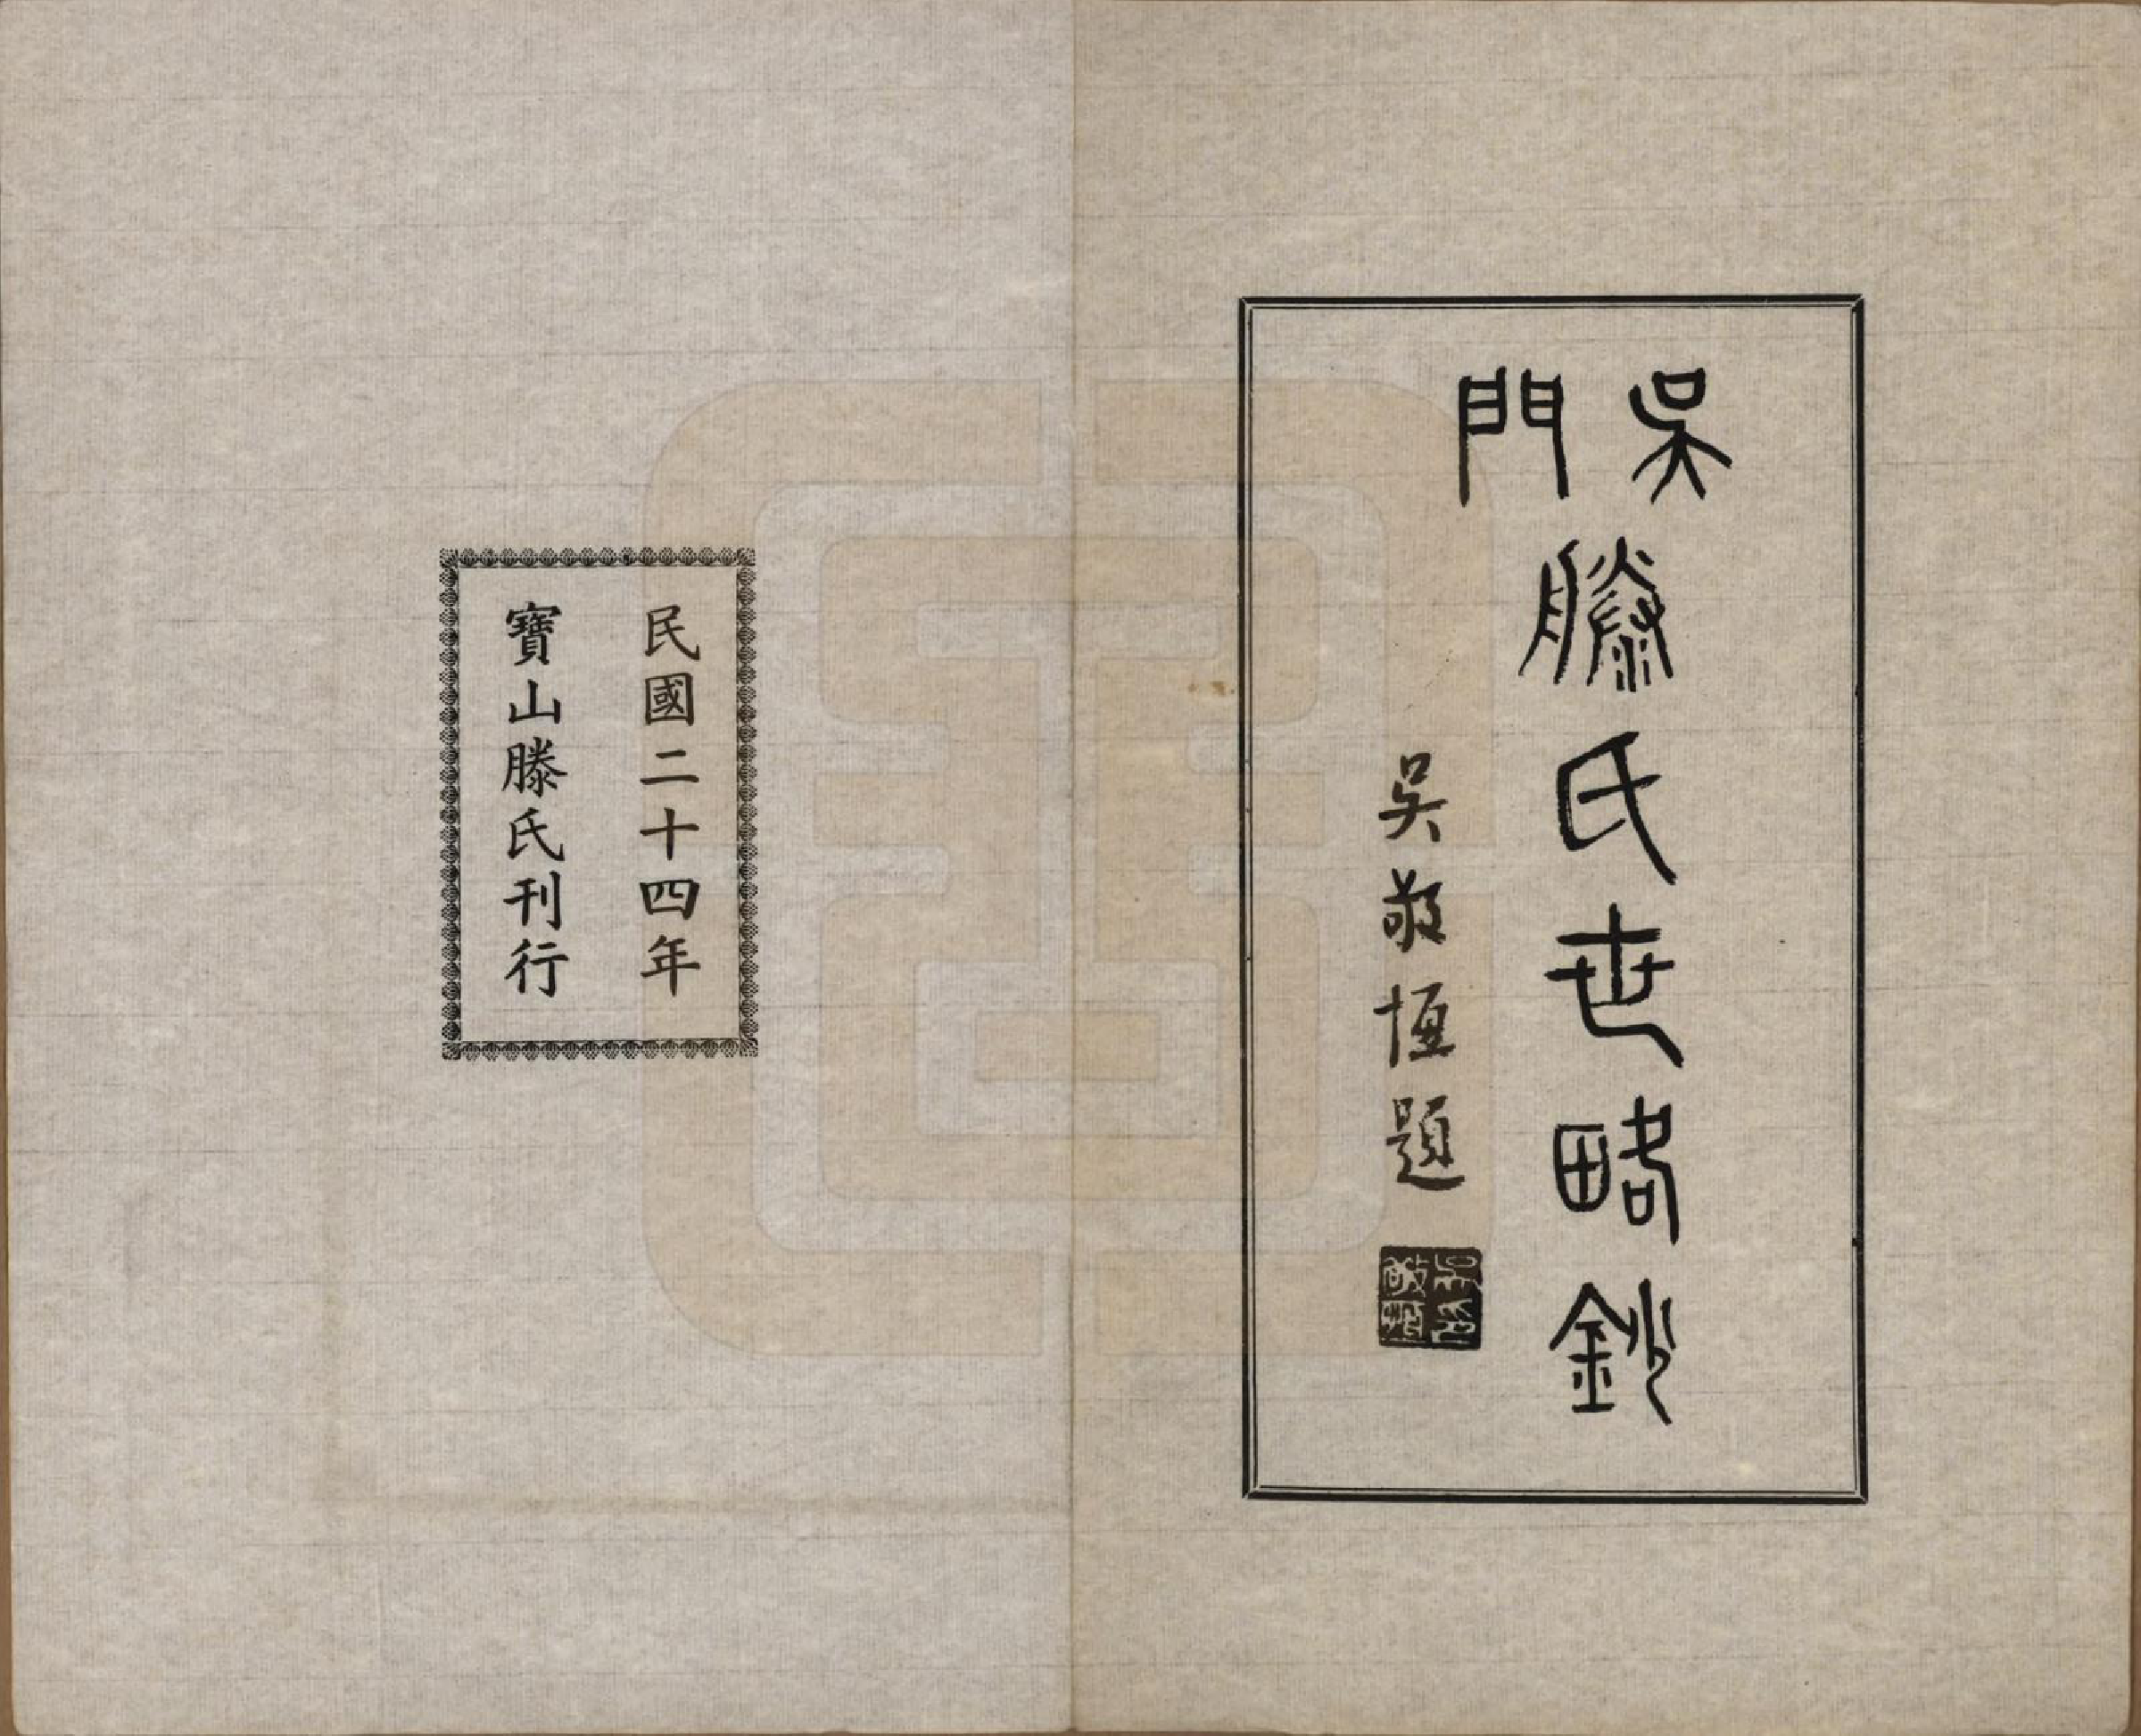 吳門
滕氏世略鈔
吳敬恆題
吳印敬恆
民國二十四年
寶山滕氏刊行